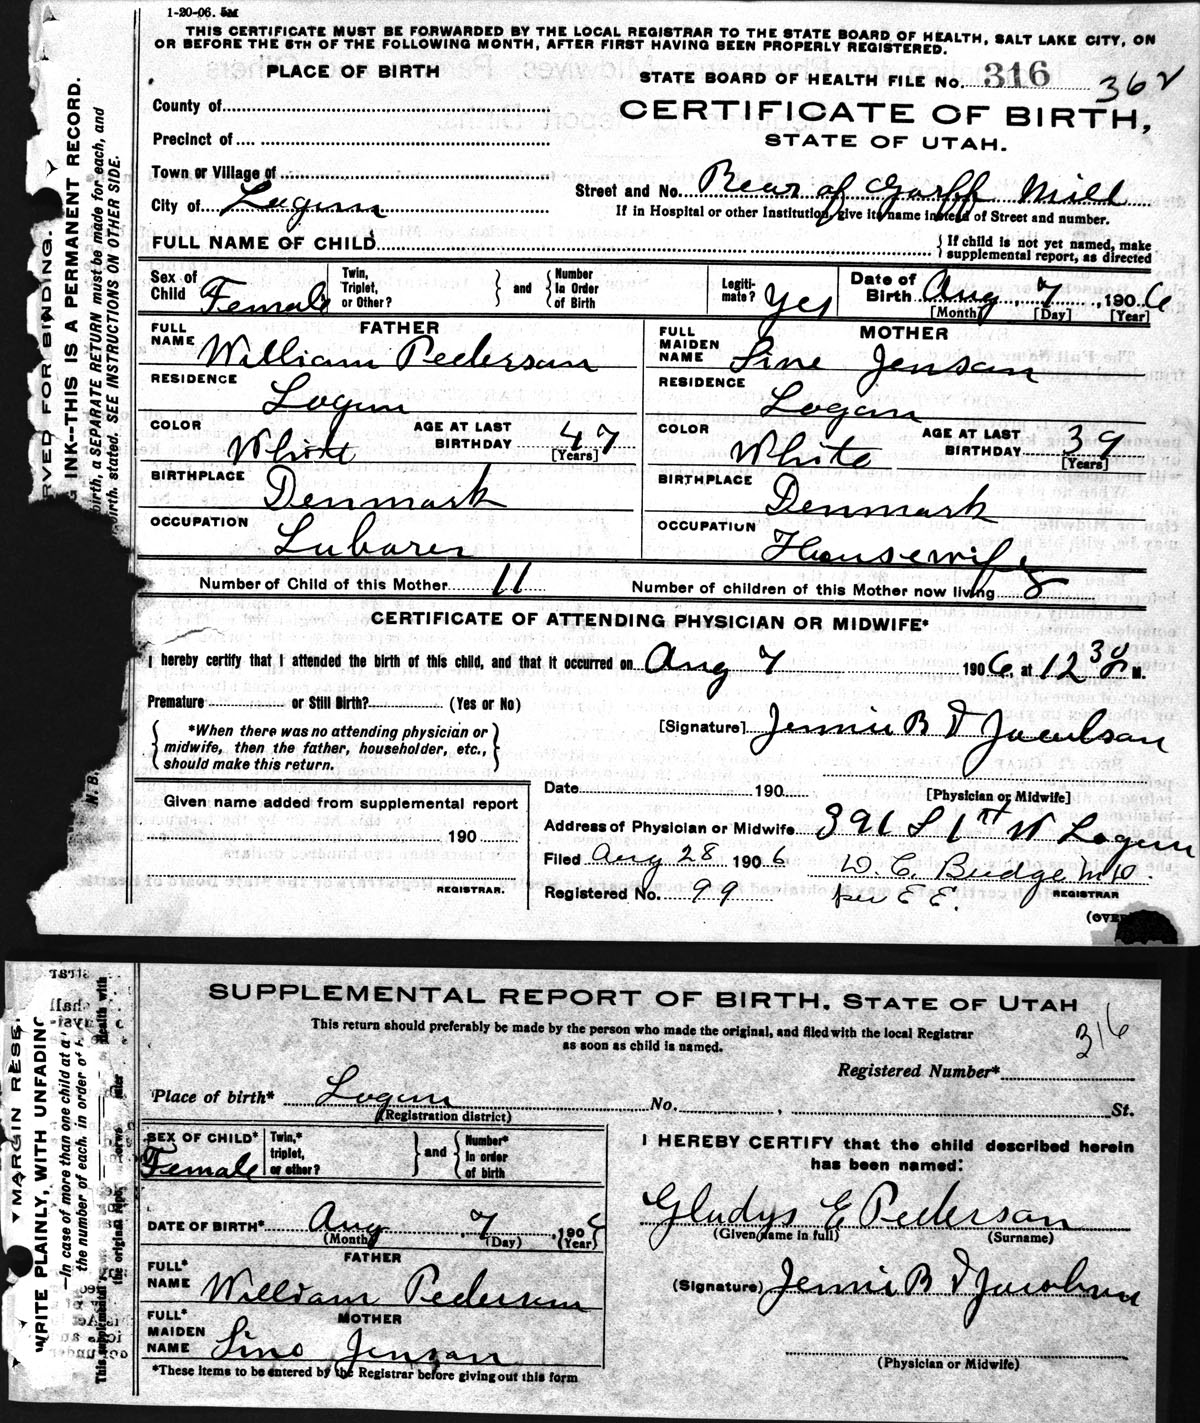 1-20-06. 5M
THIS CERTIFICATE MUST BE FORWARDED BY THE LOCAL REGISTRAR TO THE STATE BOARD OF HEALTH, SALT LAKE CITY, ON
OR BEFORE THE 5TH OF THE FOLLOWING MONTH, AFTER FIRST HAVING BEEN PROPERLY REGISTERED.
PLACE OF BIRTH
STATE BOARD OF HEALTH FILE No. 316 362
County of
CERTIFICATE OF BIRTH,
Precinct of
STATE OF UTAH.
Town or Village of
Street and No. Rear of Garff Mill
City of Logan
If in Hospital or other Institution, give its name instead of Street and number.
FULL NAME OF CHILD
{ If child is not yet named, make
supplemental report, as directed
Sex of Child Female
Twin, Triplet, or Other? } and { Number In Order of Birth
Legiti-mate? Yes
Date of Birth Aug 7, 1906
[Month] [Day] [Year]
FATHER
FULL NAME William Pederson
RESIDENCE Logan
COLOR White AGE AT LAST BIRTHDAY 47 [Years]
BIRTHPLACE Denmark
OCCUPATION Labarer
MOTHER
FULL MAIDEN NAME Sine Jensan
RESIDENCE Logan
COLOR White AGE AT LAST BIRTHDAY 39 [Years]
BIRTHPLACE Denmark
OCCUPATION Housewife
Number of Child of this Mother 11 Number of children of this Mother now living 8
CERTIFICATE OF ATTENDING PHYSICIAN OR MIDWIFE*
I hereby certify that I attended the birth of this child, and that it occurred on Aug 7 1906, at 12 30 M.
Premature or Still Birth? (Yes or No)
[Signature] Jennie B D Jacobson
{ *When there was no attending physician or
midwife, then the father, householder, etc.,
should make this return. }
Given name added from supplemental report
190
REGISTRAR.
Date 190
[Physician or Midwife]
Address of Physician or Midwife 391 S 1st W Logan
Filed Aug 28 1906 W. C. Budge MD.
Registered No. 99 per E E. REGISTRAR
(OVE
RVED FOR BINDING.
G INK--THIS IS A PERMANENT RECORD.
birth, a SEPARATE RETURN must be made for each, and
birth, stated. SEE INSTRUCTIONS ON OTHER SIDE.
N. B.
SUPPLEMENTAL REPORT OF BIRTH, STATE OF UTAH
This return should preferably be made by the person who made the original, and filed with the local Registrar
as soon as child is named.
316
Registered Number*
Place of birth* Logan No. , St.
(Registration district)
SEX OF CHILD* Female
Twin,* triplet, or other? } and { Number* in order of birth
DATE OF BIRTH* Aug 7, 1906
(Month) (Day) (Year)
FATHER
FULL* NAME William Pederson
MOTHER
FULL* MAIDEN NAME Sine Jensan
*These items to be entered by the Registrar before giving out this form
I HEREBY CERTIFY that the child described herein
has been named:
Gladys E Pederson
(Given name in full) (Surname)
(Signature) Jennie B D Jacobson
(Physician or Midwife)
MARGIN RESE
WRITE PLAINLY, WITH UNFADING
—In case of more than one child at a
the number of each, in order of
This supplemental
the original